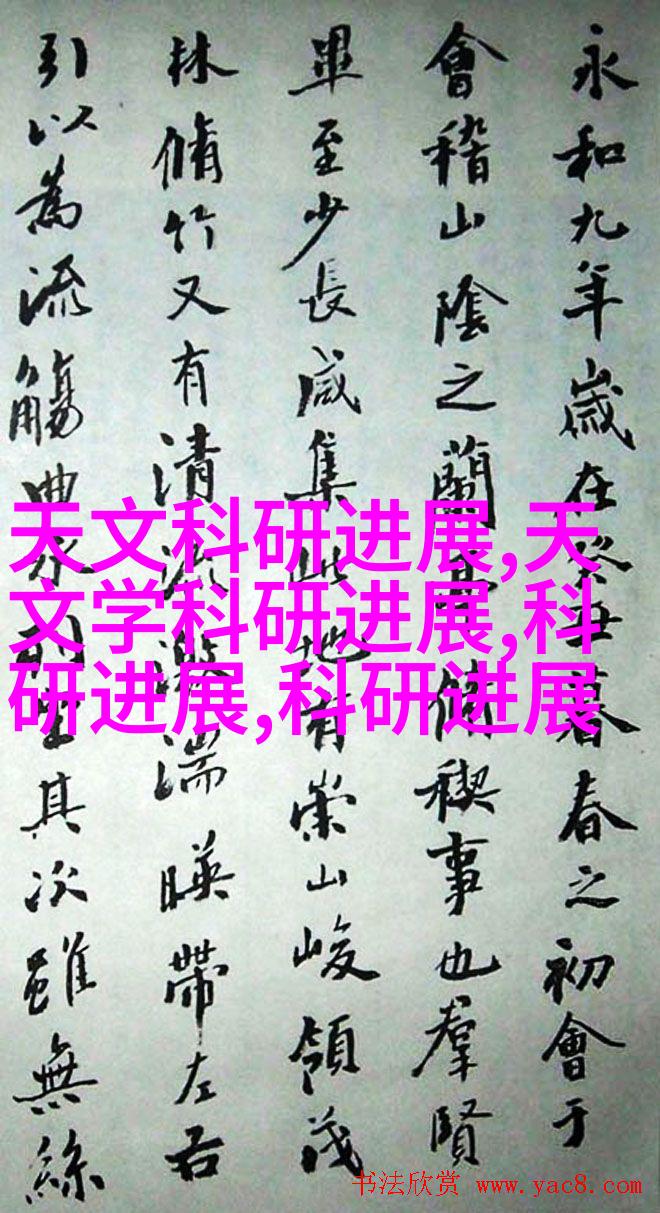 永和九年歲在癸丑暮春之初會于
會稽山陰之蘭亭脩稧事也羣賢
畢至少長咸集此地有崇山峻領茂
林脩竹又有清流激湍暎帶左右
引以為流觴曲水列坐其次雖無絲
天文科研进展,天
文学科研进展,科
研进展,科研进展
书法欣赏 www.yac8.com